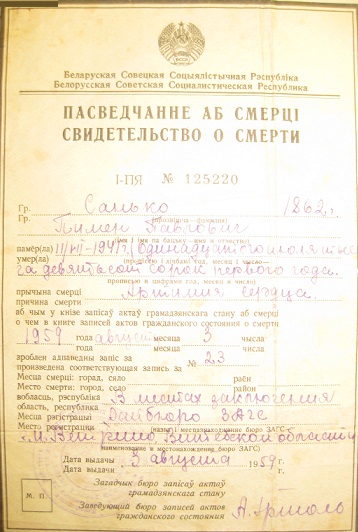 Беларуская Совецкая Соцыялістычная Рэспубліка
Белорусская Советская Социалистическая Республика
ПАСВЕДЧАННЕ АБ СМЕРЦІ
СВИДЕТЕЛЬСТВО О СМЕРТИ
І-ПЯ № 125220
Гр. Санько 1862 г.
Гр. (прозвішча — фамилия)
Пимер Павлович
(імя і імя па бацьку — имя и отчество)
памёр(ла) 11/VII-1941 г. (одиннадцатого июля тысяча
умер(ла)
девятьсот сорок первого года.
прописью и цифрами год, месяц и число
прычына смерці Аритмия сердца.
причина смерти
аб чым у кнізе запісаў актаў грамадзянскага стану аб смерці
о чем в книге записей актов гражданского состояния о смерти
1959 года августа месяца 3 числа
года месяца числа
зроблен адпаведны запіс за № 23
произведена соответствующая запись за
Месца смерці: горад, сяло раён
Место смерти: город, село район
вобласць, рэспубліка В местах заключения
область, республика
Месца рэгістрацыі Райбюро ЗАГС
Место регистрации
м. Ветрино, Витебской области
наименование и местонахождение бюро ЗАГС)
Дата выдачы 3 августа 1959 г.
Дата выдачи
Загадчык бюро запісаў актаў
грамадзянскага стану
М. П.
Заведующий бюро записей актов
гражданского состояния